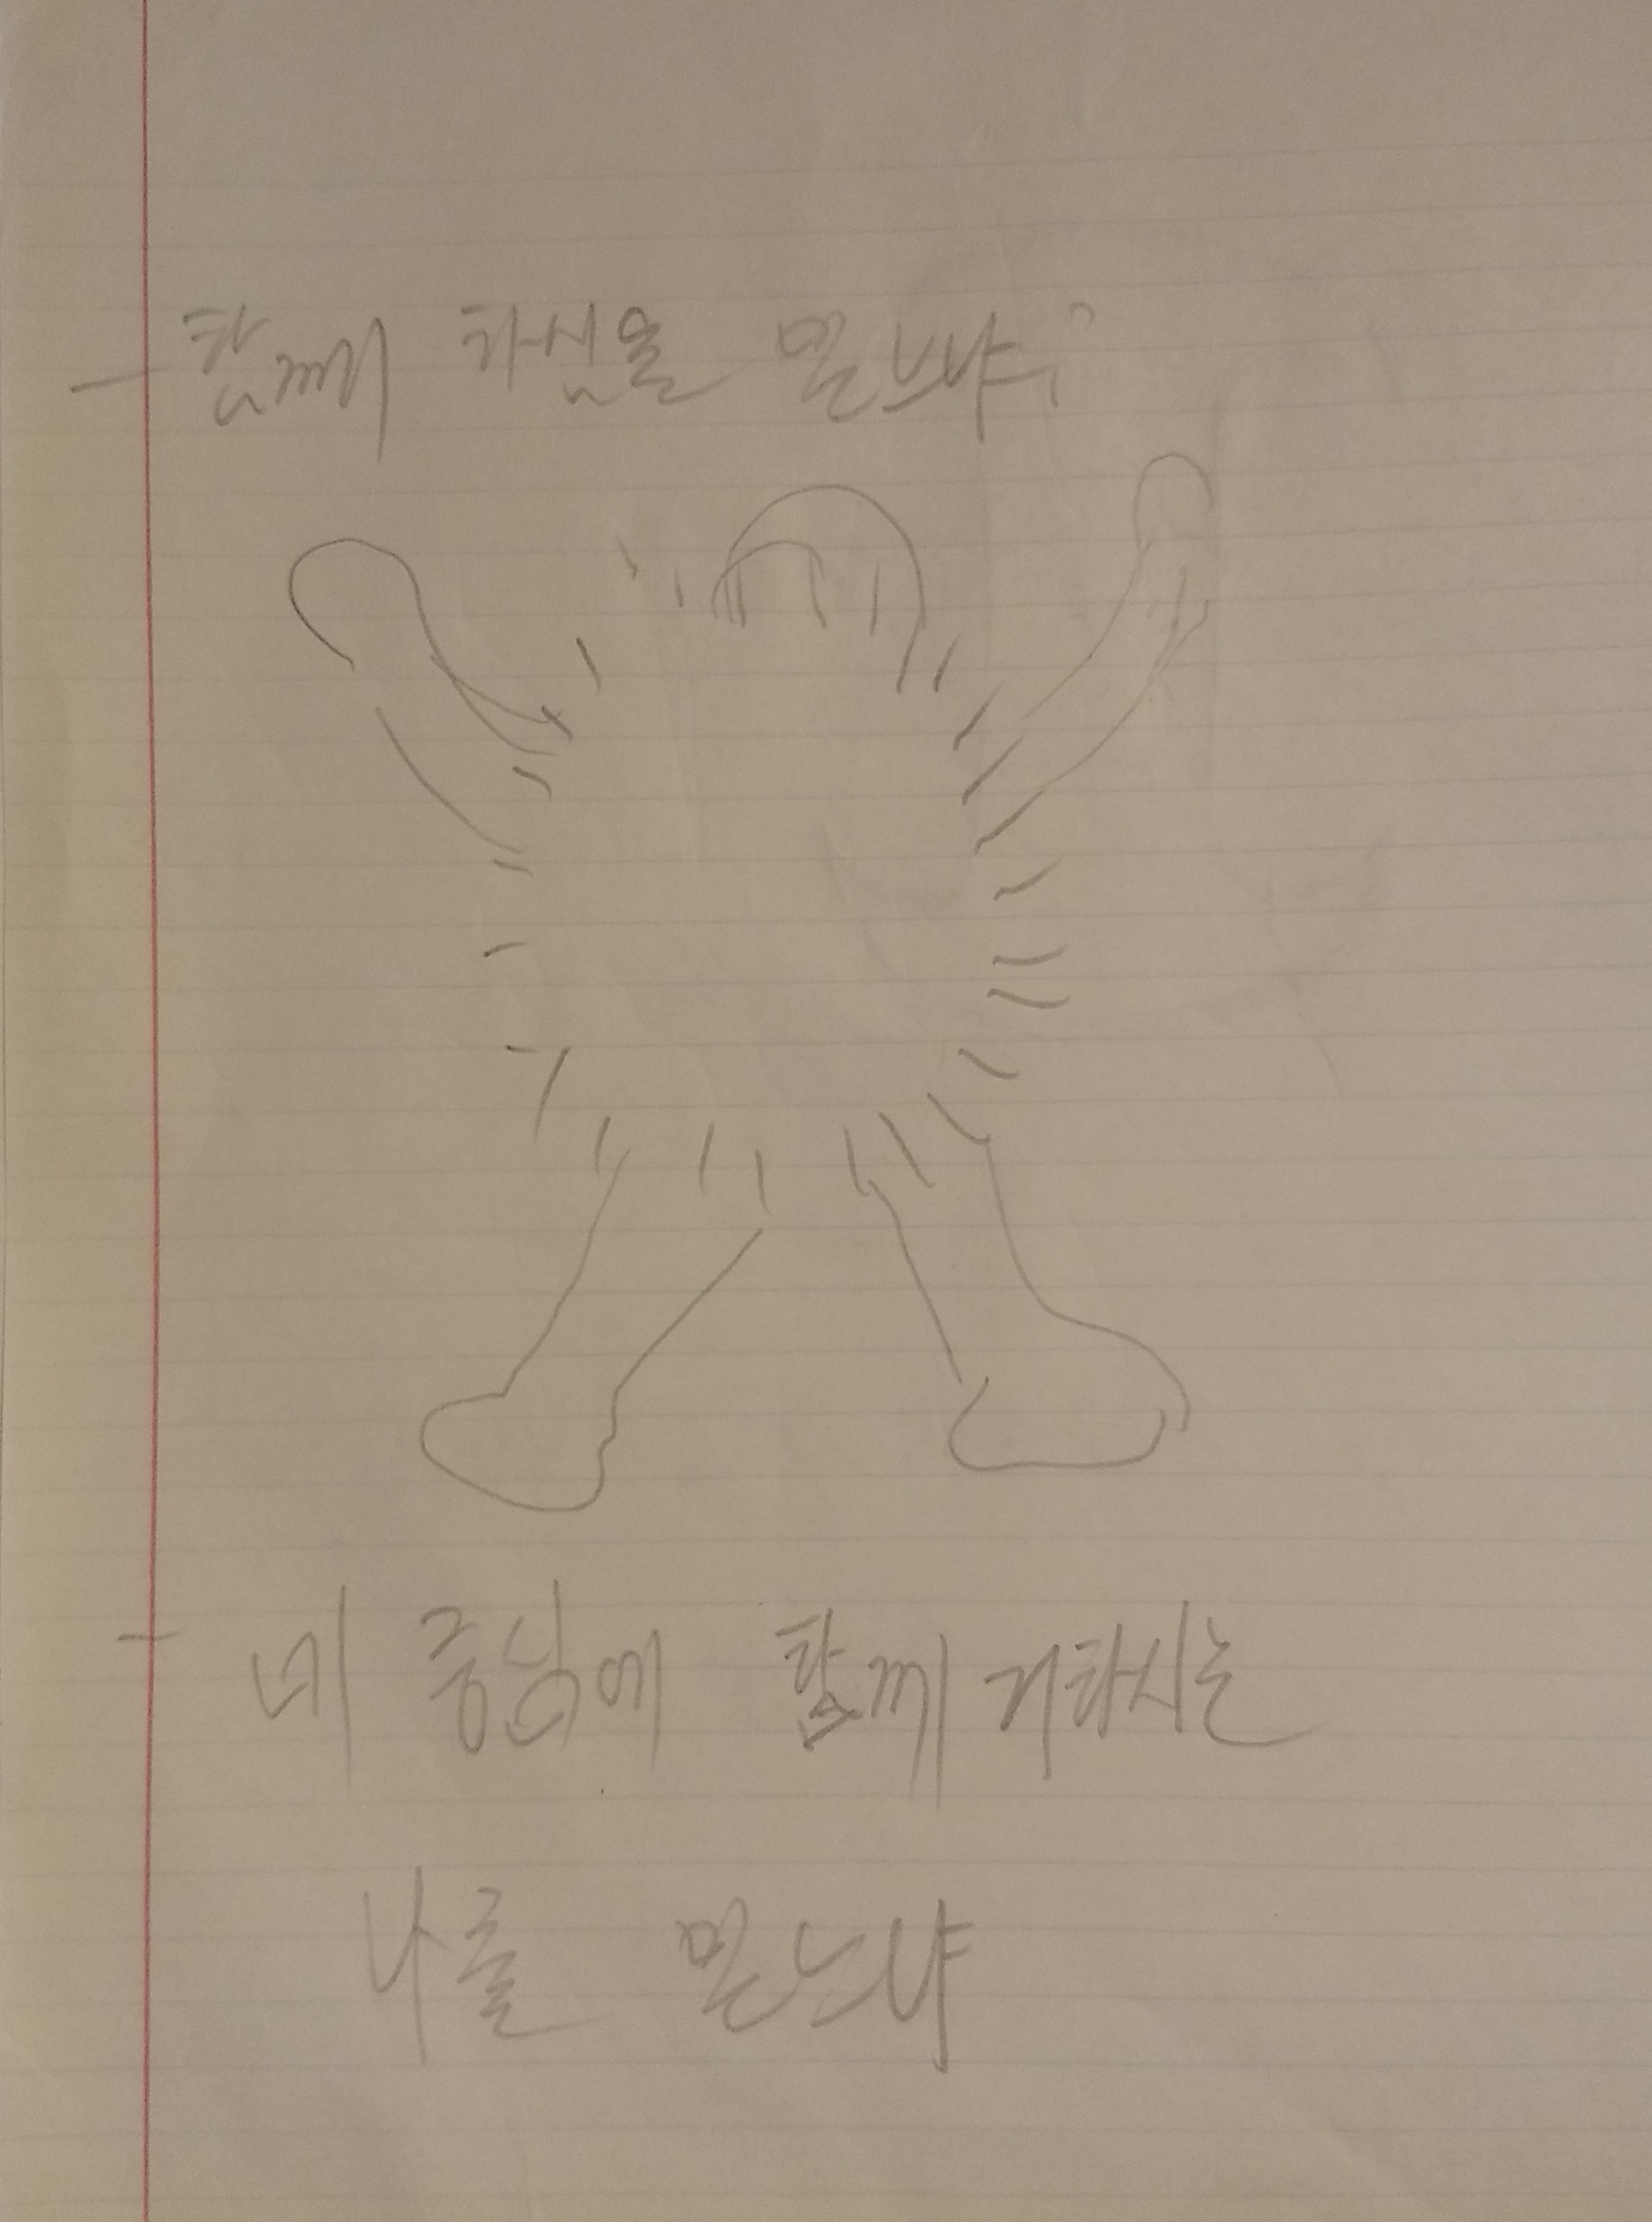 - 함께 하심을 믿느냐?
- 네 중심에 함께 거하시는
나를 믿느냐